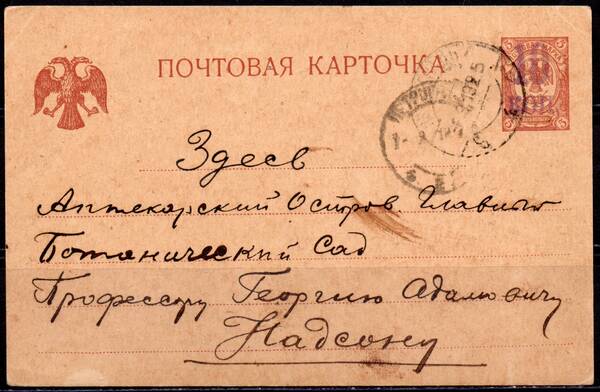 ПОЧТОВАЯ КАРТОЧКА
Здесь
Аптекарский Остров Главный
Ботанический Сад
Профессору Георгию Адамовичу
Надсону